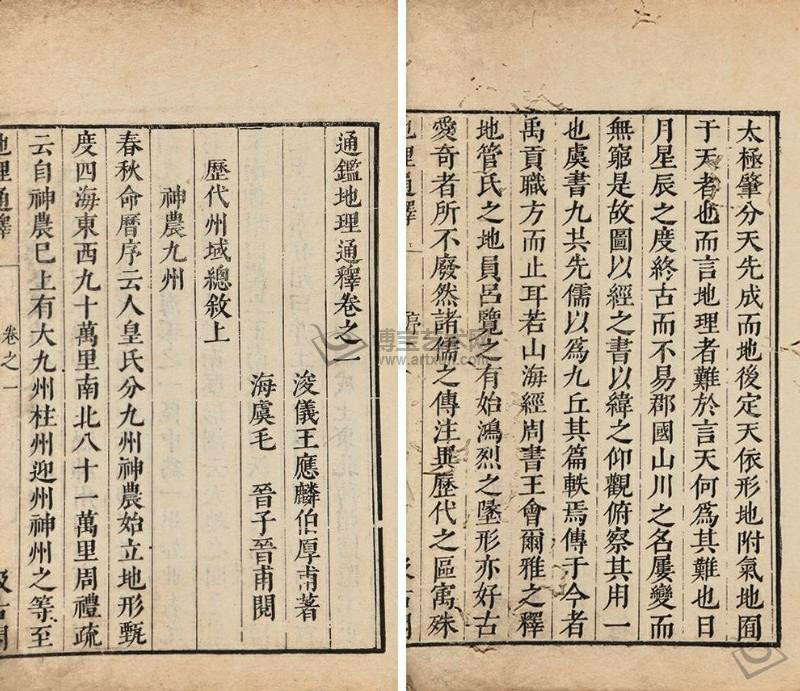 太極肇分天先成而地後定天依形地附氣地囿
于天者也而言地理者難於言天何為其難也日
月星辰之度終古而不易郡國山川之名屢變而
無窮是故圖以經之書以緯之仰觀俯察其用一
也虞書九共先儒以為九丘其篇軼焉傳于今者
禹貢職方而止耳若山海經周書王會爾雅之釋
地管氏之地員呂覽之有始鴻烈之墬形亦好古
愛奇者所不廢然諸儒之傳注異歷代之區寓殊
地理通釋 序 汲古閣
通鑑地理通釋卷之一
浚儀王應麟伯厚甫著
海虞毛 晉子晉甫閱
歷代州域總敘上
神農九州
春秋命曆序云人皇氏分九州神農始立地形甄
度四海東西九十萬里南北八十一萬里周禮疏
云自神農巳上有大九州柱州迎州神州之等至
地理通釋 卷之一 汲古閣
博宝艺术网
www.artxun.com